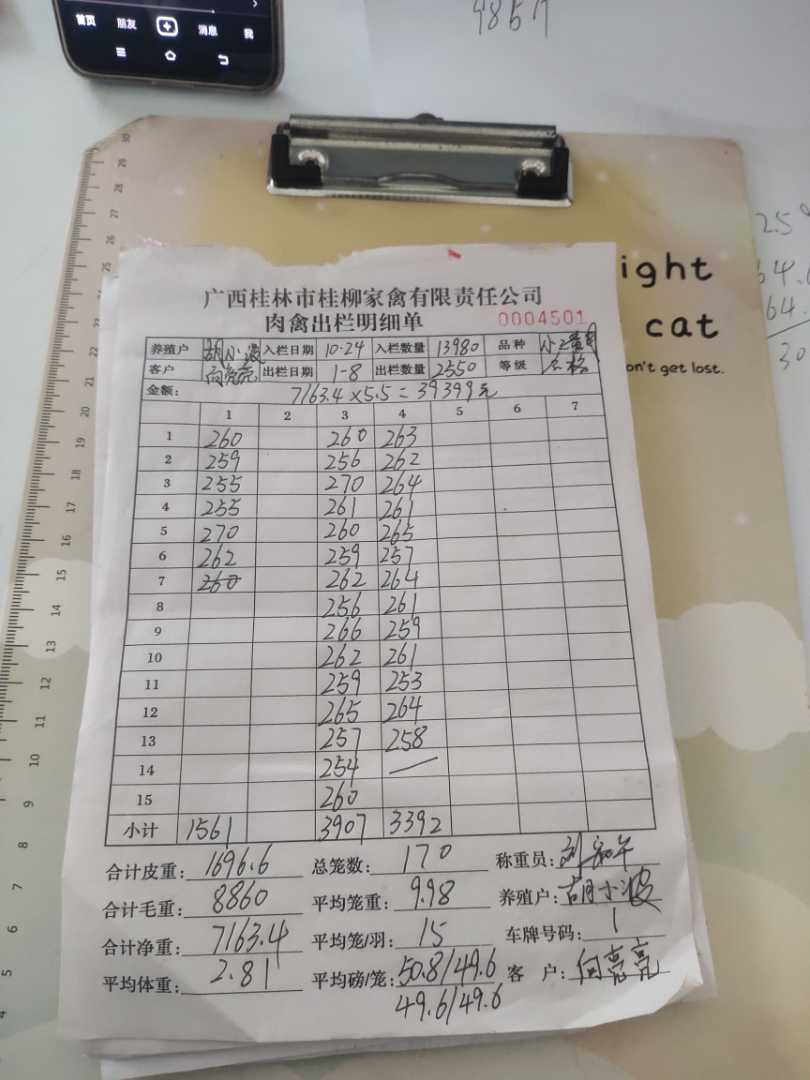 首页 朋友 消息 我
485斤
ight
cat
on't get lost.
广西桂林市桂柳家禽有限责任公司
肉禽出栏明细单 0004501
养殖户 胡小波 入栏日期 10-24 入栏数量 13980 品种
客户 向亮亮 出栏日期 1-8 出栏数量 2550 等级 合格
金额: 7163.4×5.5=39399元
1 2 3 4 5 6 7
1 260 260 263
2 259 256 262
3 255 270 264
4 255 261 261
5 270 260 265
6 262 259 257
7 260 262 264
8 256 261
9 266 259
10 262 261
11 259 253
12 265 264
13 257 258
14 254 —
15 260
小计 1561 3907 3392
合计皮重: 1696.6 总笼数: 170 称重员:
合计毛重: 8860 平均笼重: 9.98 养殖户: 胡小波
合计净重: 7163.4 平均笼/羽: 15 车牌号码: 1
平均体重: 2.81 平均磅/笼: 50.8/49.6 客 户: 向亮亮
49.6/49.6